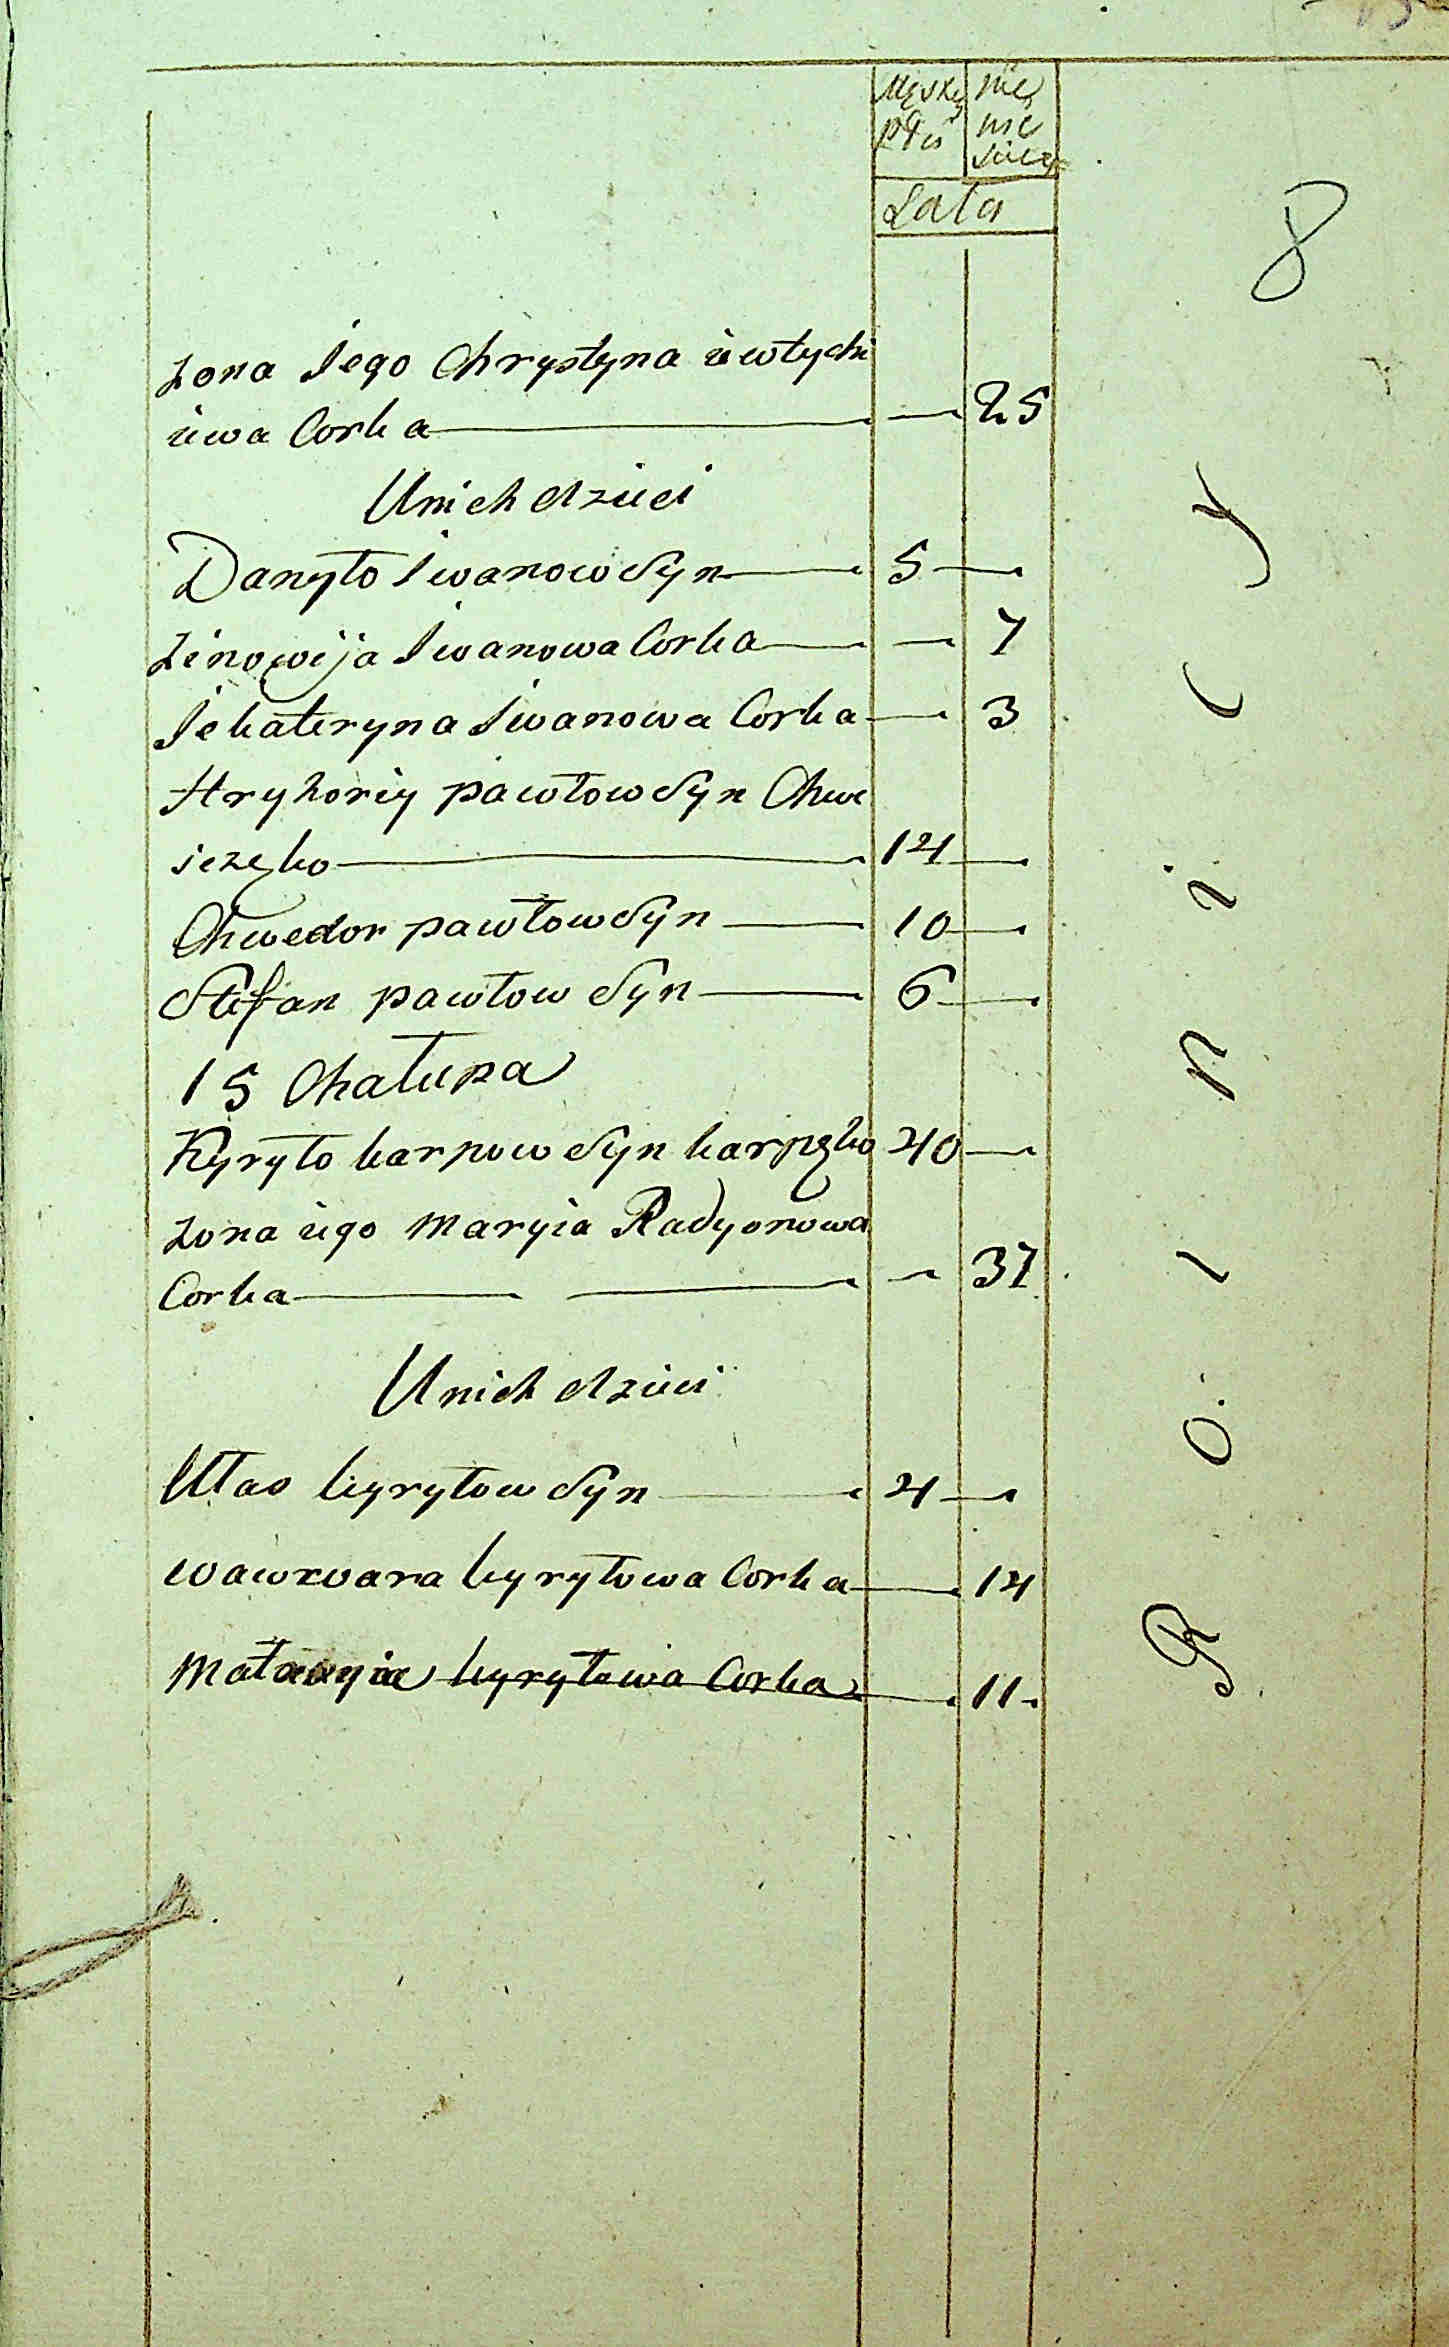 Męskę
płci
nie
wie
scie
Lata
8
żona Jego Chrystyna iewtychi
iewa Corka — 25
U nich dzieci
Danyło Iwanow Syn — 5 —
Zinowija Iwanowa Corka — — 7
Jekateryna Iwanowa Corka — — 3
Hryhoriy pawłow Syn Chwe
sezęko — 14 —
Chwedor pawłow Syn — 10 —
Stefan pawłow Syn — 6 —
15 Chałupa
Kyryło karpow Syn karpęko 40 —
żona iego Maryia Radyonowa
Corka — — — 37
U nich dzieci
Ułas kyryłow Syn — 4 —
wawrwara kyryłowa Corka — 14
Małanyia kyryłowa Corka — 11
R o l n i c y